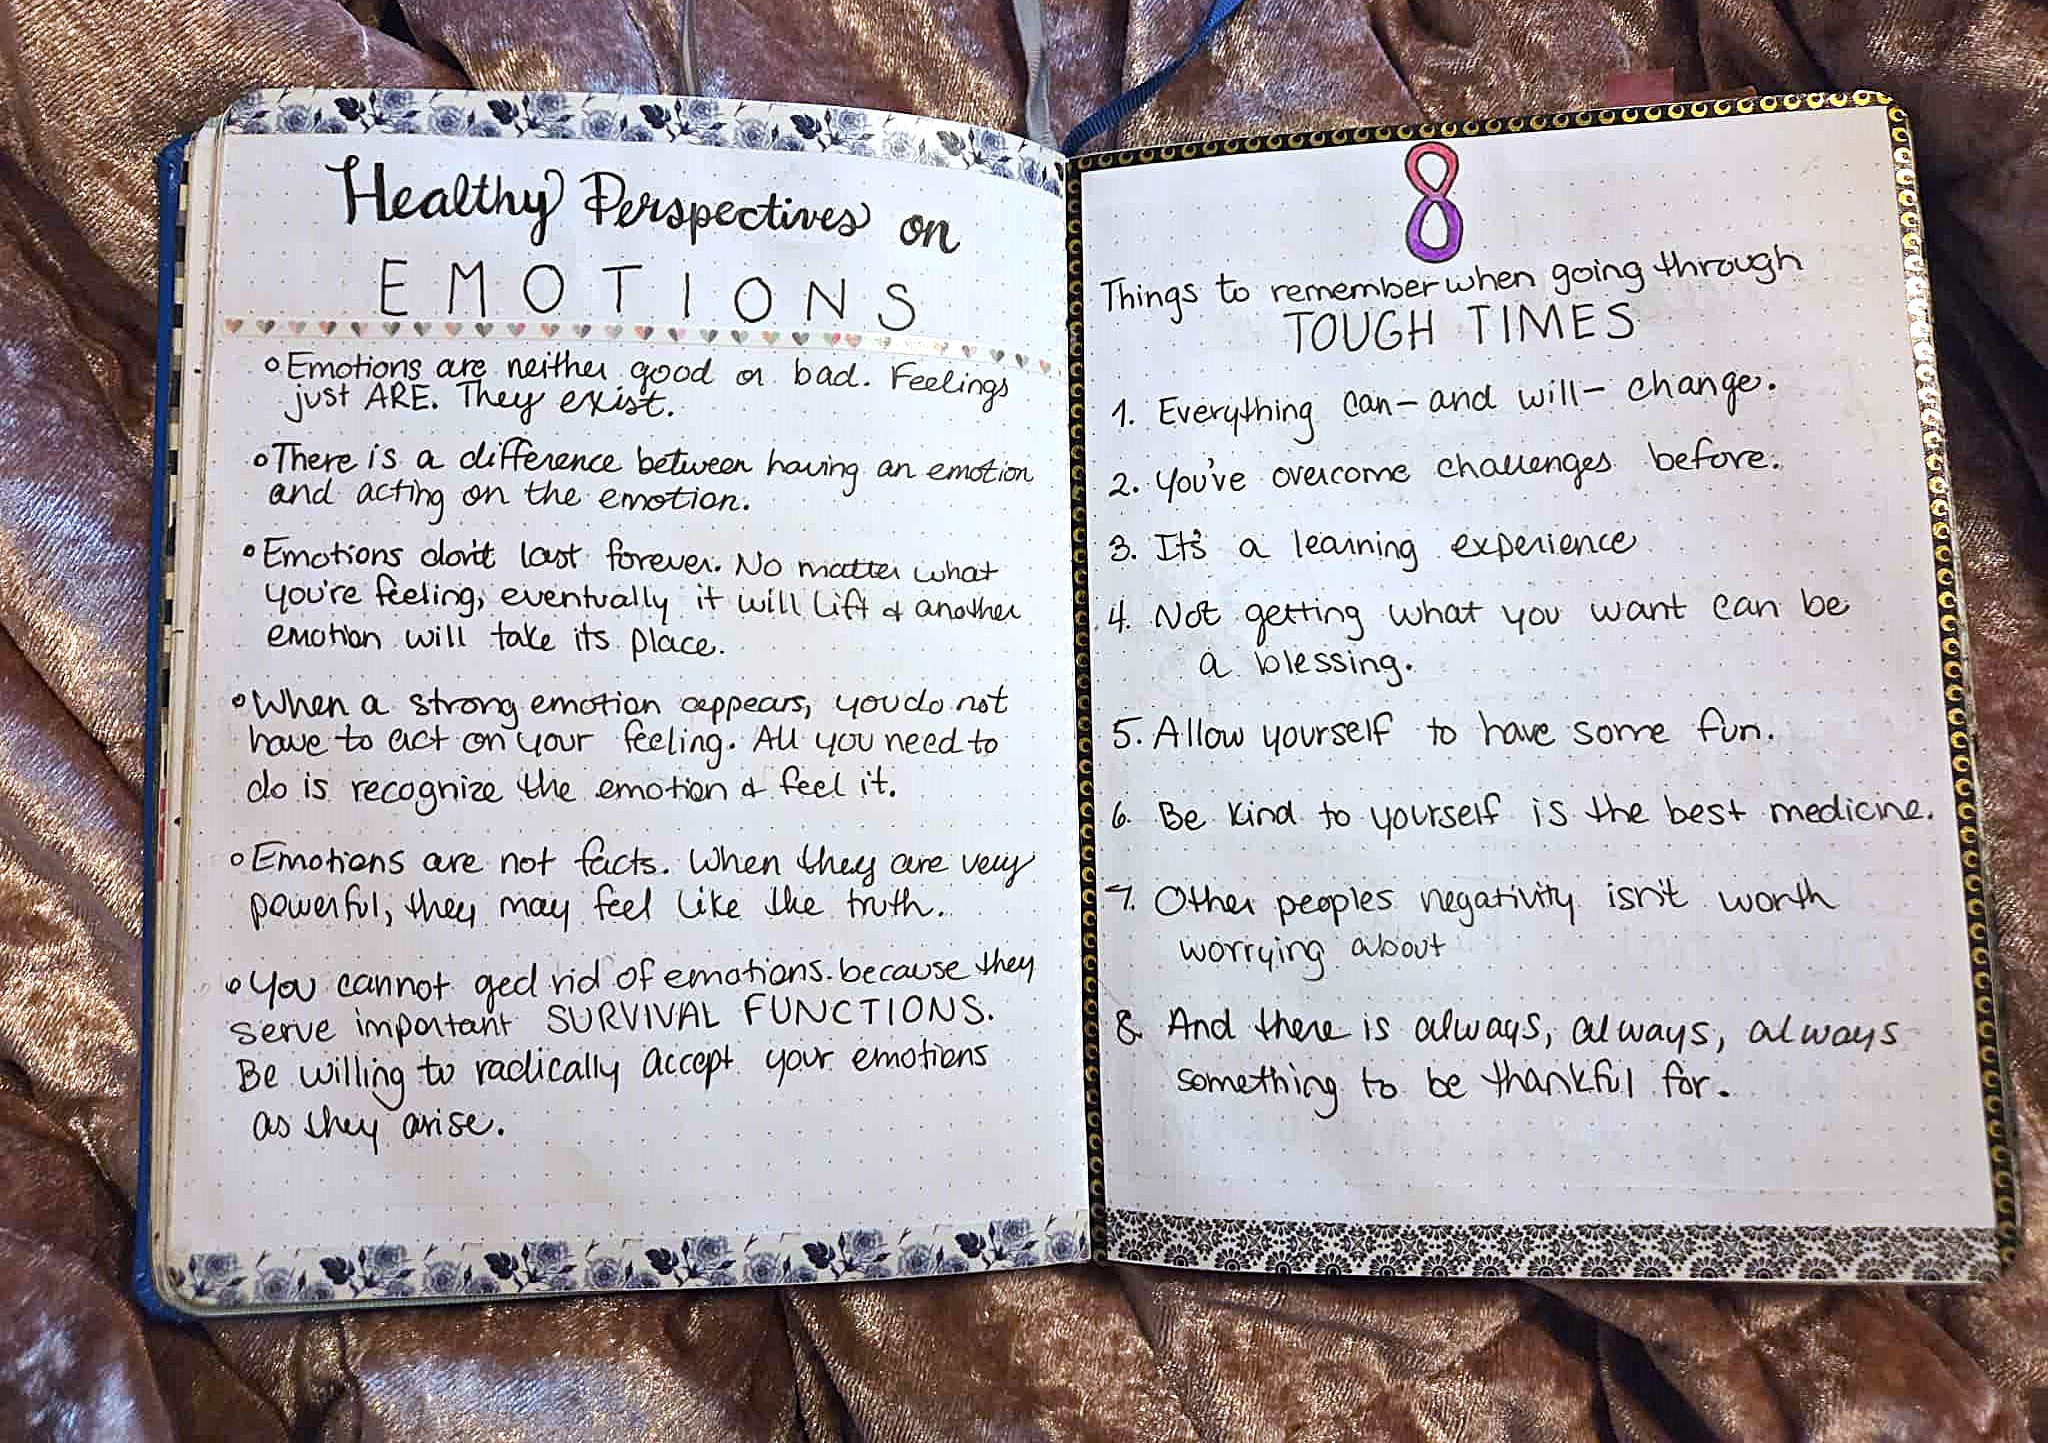 Healthy Perspectives on
EMOTIONS
Emotions are neither good or bad. Feelings
just ARE. They exist.
There is a difference between having an emotion
and acting on the emotion.
Emotions don't last forever. No matter what
you're feeling, eventually it will lift & another
emotion will take its place.
When a strong emotion appears, you do not
have to act on your feeling. All you need to
do is recognize the emotion & feel it.
Emotions are not facts. When they are very
powerful, they may feel like the truth.
You cannot ged rid of emotions because they
serve important SURVIVAL FUNCTIONS.
Be willing to radically accept your emotions
as they arise.
8
Things to remember when going through
TOUGH TIMES
1. Everything can - and will - change.
2. You've overcome challenges before.
3. It's a learning experience
4. Not getting what you want can be
a blessing.
5. Allow yourself to have some fun.
6. Be kind to yourself is the best medicine.
7. Other peoples negativity isn't worth
worrying about
8. And there is always, always, always
something to be thankful for.